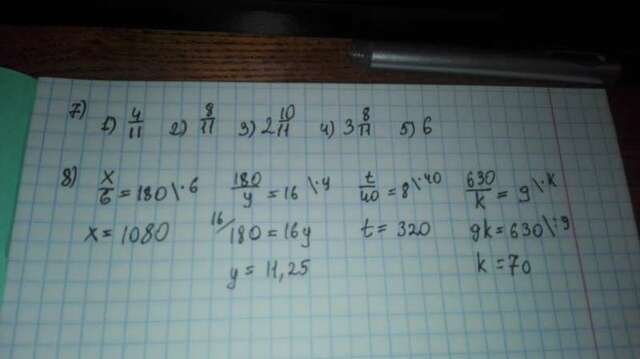 7) 1) 4/11 2) 8/11 3) 2 10/11 4) 3 8/11 5) 6
8) x/6 = 180 \·6 180/y = 16 \·y t/40 = 8 \·40 630/k = 9 \·k
x = 1080 16/180 = 16y t = 320 9k = 630 \:9
y = 11,25 k = 70